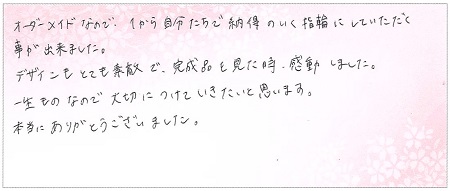 オーダーメイドなので、1から自分たちで納得のいく指輪にしていただく
事が出来ました。
デザインもとても素敵で、完成品を見た時、感動しました。
一生ものなので大切につけていきたいと思います。
本当にありがとうございました。